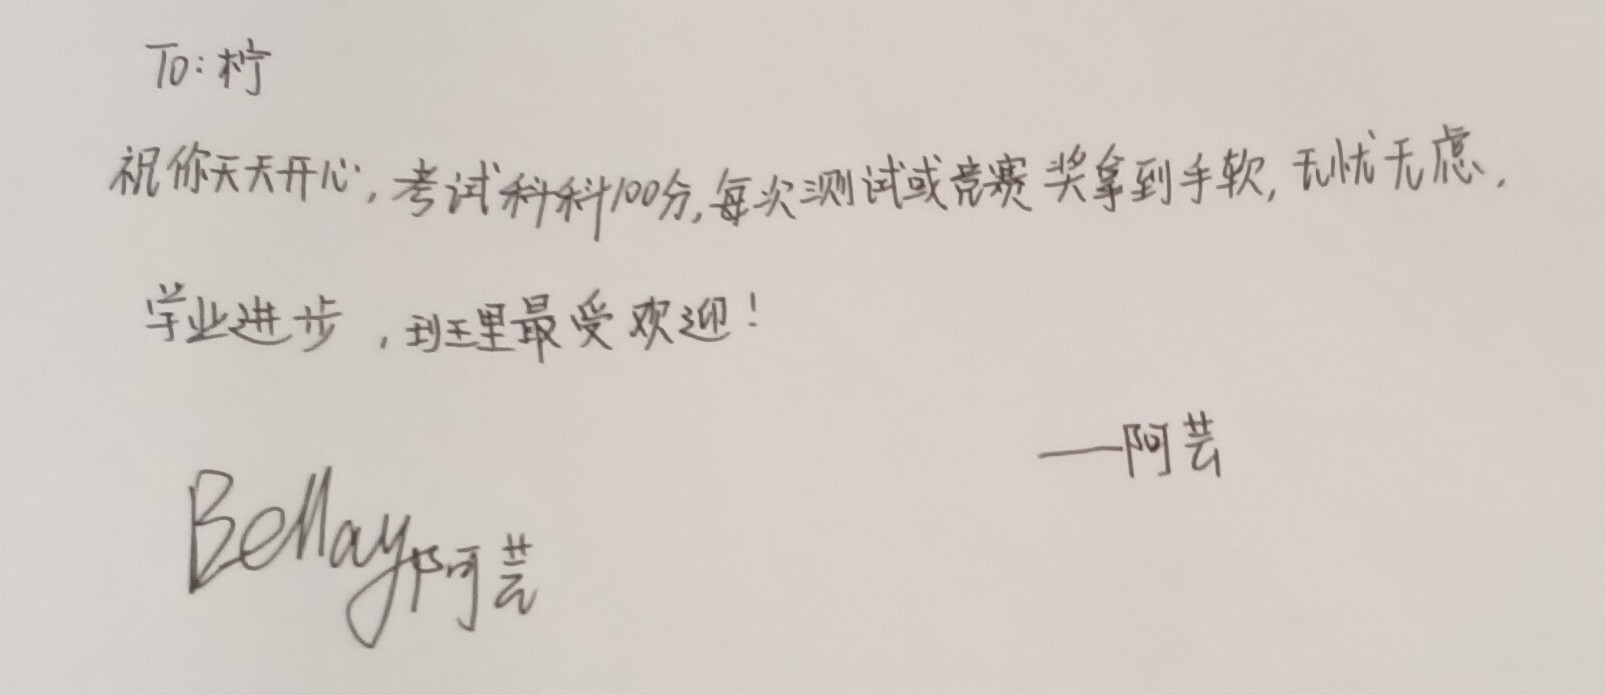 To:柠
祝你天天开心,考试科科100分,每次测试或竞赛奖拿到手软,无忧无虑,
学业进步,班里最受欢迎!
——阿芸
Bellay阿芸